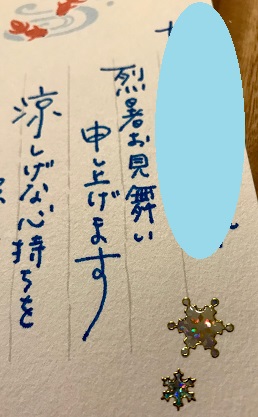 烈暑お見舞い
申し上げます
涼しげな心持ちを